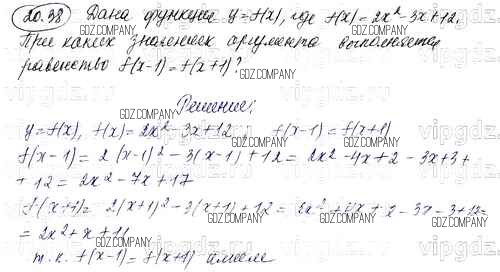 20.38 Дана функция y=f(x), где f(x) = 2x² - 3x + 12.
При каких значениях аргумента выполняется
равенство f(x-1) = f(x+1)?
Решение:
y=f(x), f(x) = 2x² - 3x + 12 f(x-1) = f(x+1)
f(x-1) = 2(x-1)² - 3(x-1) + 12 = 2x² - 4x + 2 - 3x + 3 +
+ 12 = 2x² - 7x + 17
f(x+1) = 2(x+1)² - 3(x+1) + 12 = 2x² + 4x + 2 - 3x - 3 + 12 =
= 2x² + x + 11
т.к. f(x-1) = f(x+1) имеем
GDZ.COMPANY
vipgdz.com